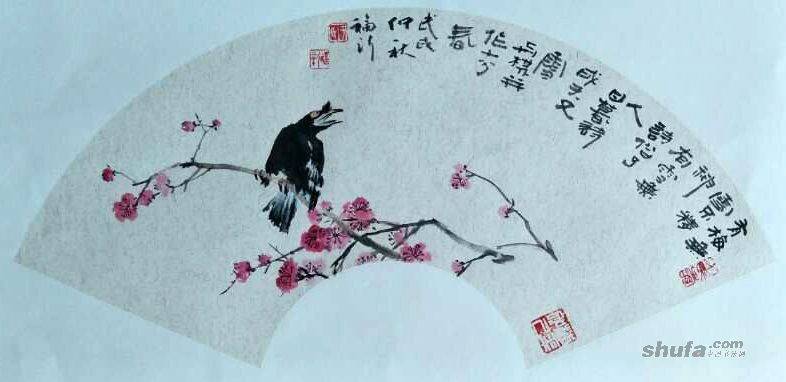 有梅無
雪不精
神
有雪無
詩俗了
人
日暮詩
成天又
雪
与梅并
作十分
春
戊戌
仲秋
福
shufa.com